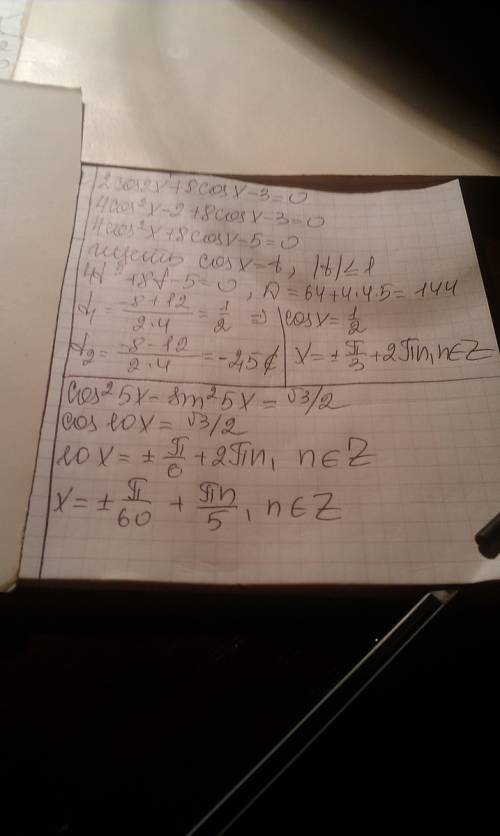 2cos2x+8cosx-3=0
4cos²x-2+8cosx-3=0
4cos²x+8cosx-5=0
пусть cosx=t, |t|≤1
4t²+8t-5=0, D=64+4·4·5=144
t₁=(-8+12)/(2·4)=1/2 ⇒ cosx=1/2
t₂=(-8-12)/(2·4)=-2,5¢ x=±π/3+2πn, n∈Z
cos²5x-sin²5x=√3/2
cos10x=√3/2
10x=±π/6+2πn, n∈Z
x=±π/60+πn/5, n∈Z